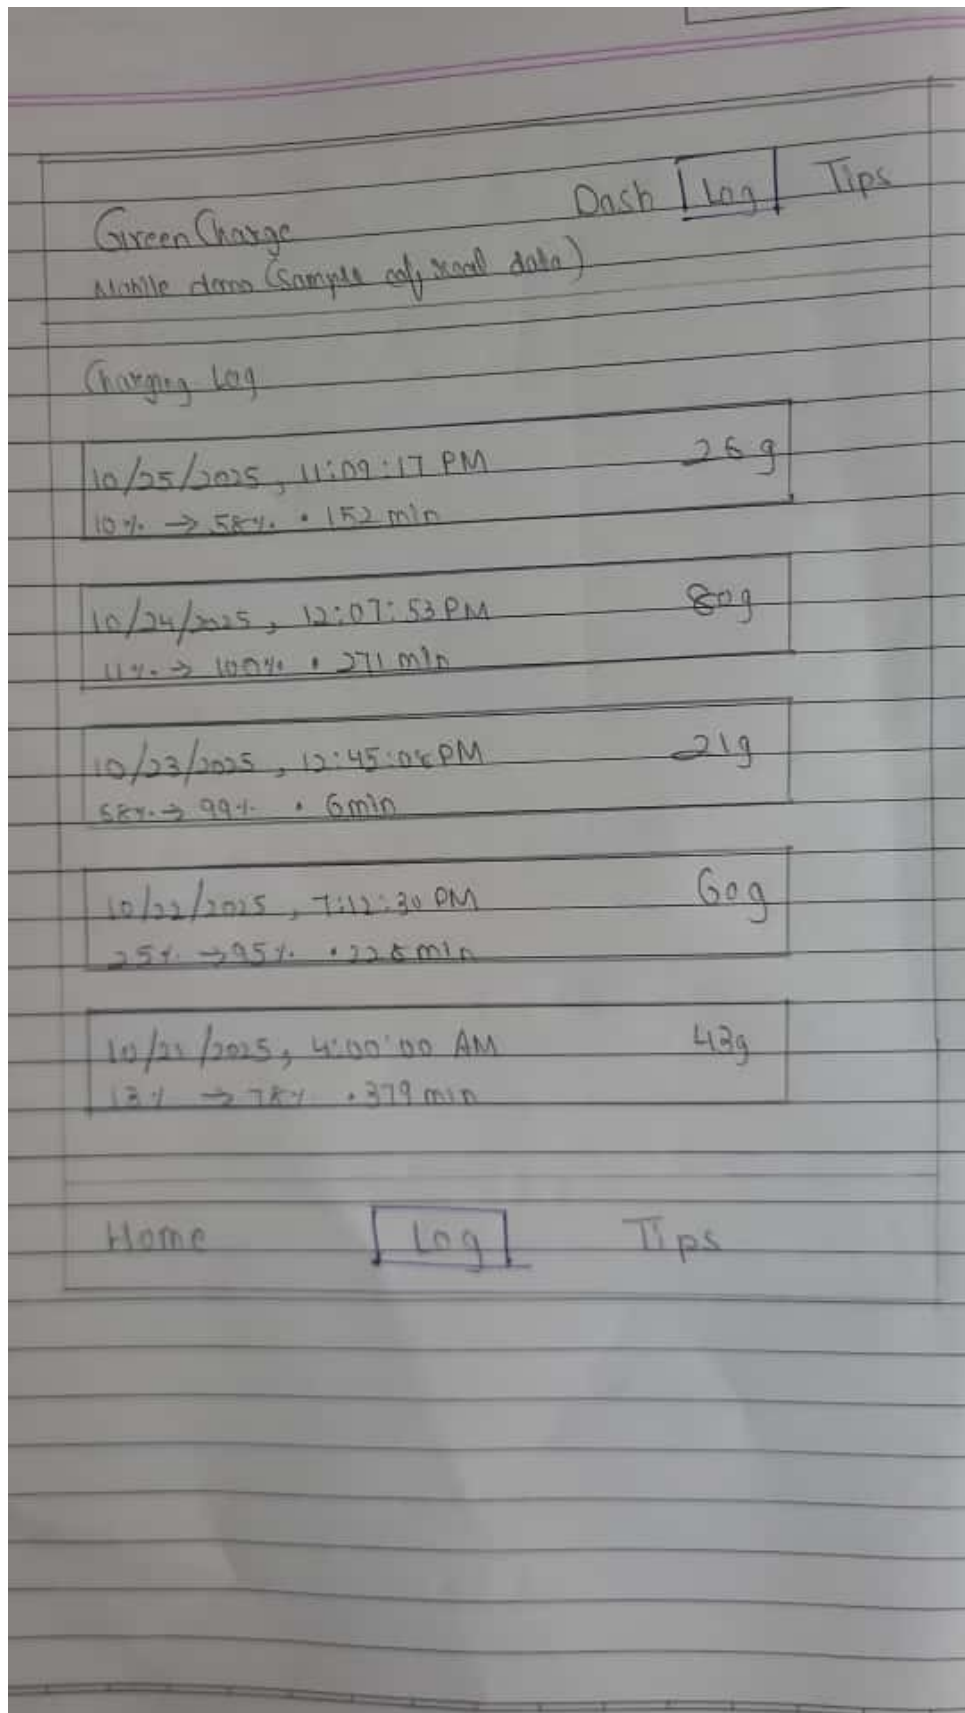 GreenCharge
Dash Log Tips
Mobile demo (Sample of real data)
Charging Log
10/25/2025, 11:09:17 PM 26g
10% → 58% • 152 min
10/24/2025, 12:07:53 PM 80g
11% → 100% • 271 min
10/23/2025, 12:45:08 PM 21g
58% → 99% • 6min
10/22/2025, 7:12:30 PM 60g
25% → 95% • 228 min
10/21/2025, 4:00:00 AM 43g
13% → 78% • 379 min
Home Log Tips